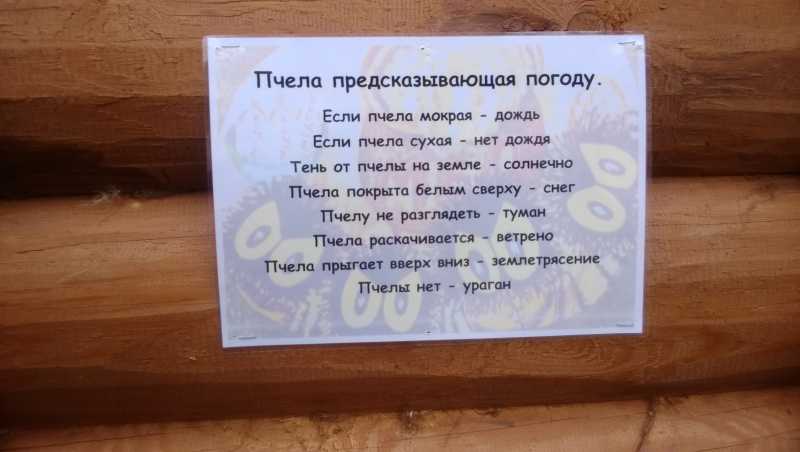 Пчела предсказывающая погоду.
Если пчела мокрая - дождь
Если пчела сухая - нет дождя
Тень от пчелы на земле - солнечно
Пчела покрыта белым сверху - снег
Пчелу не разглядеть - туман
Пчела раскачивается - ветрено
Пчела прыгает вверх вниз - землетрясение
Пчелы нет - ураган